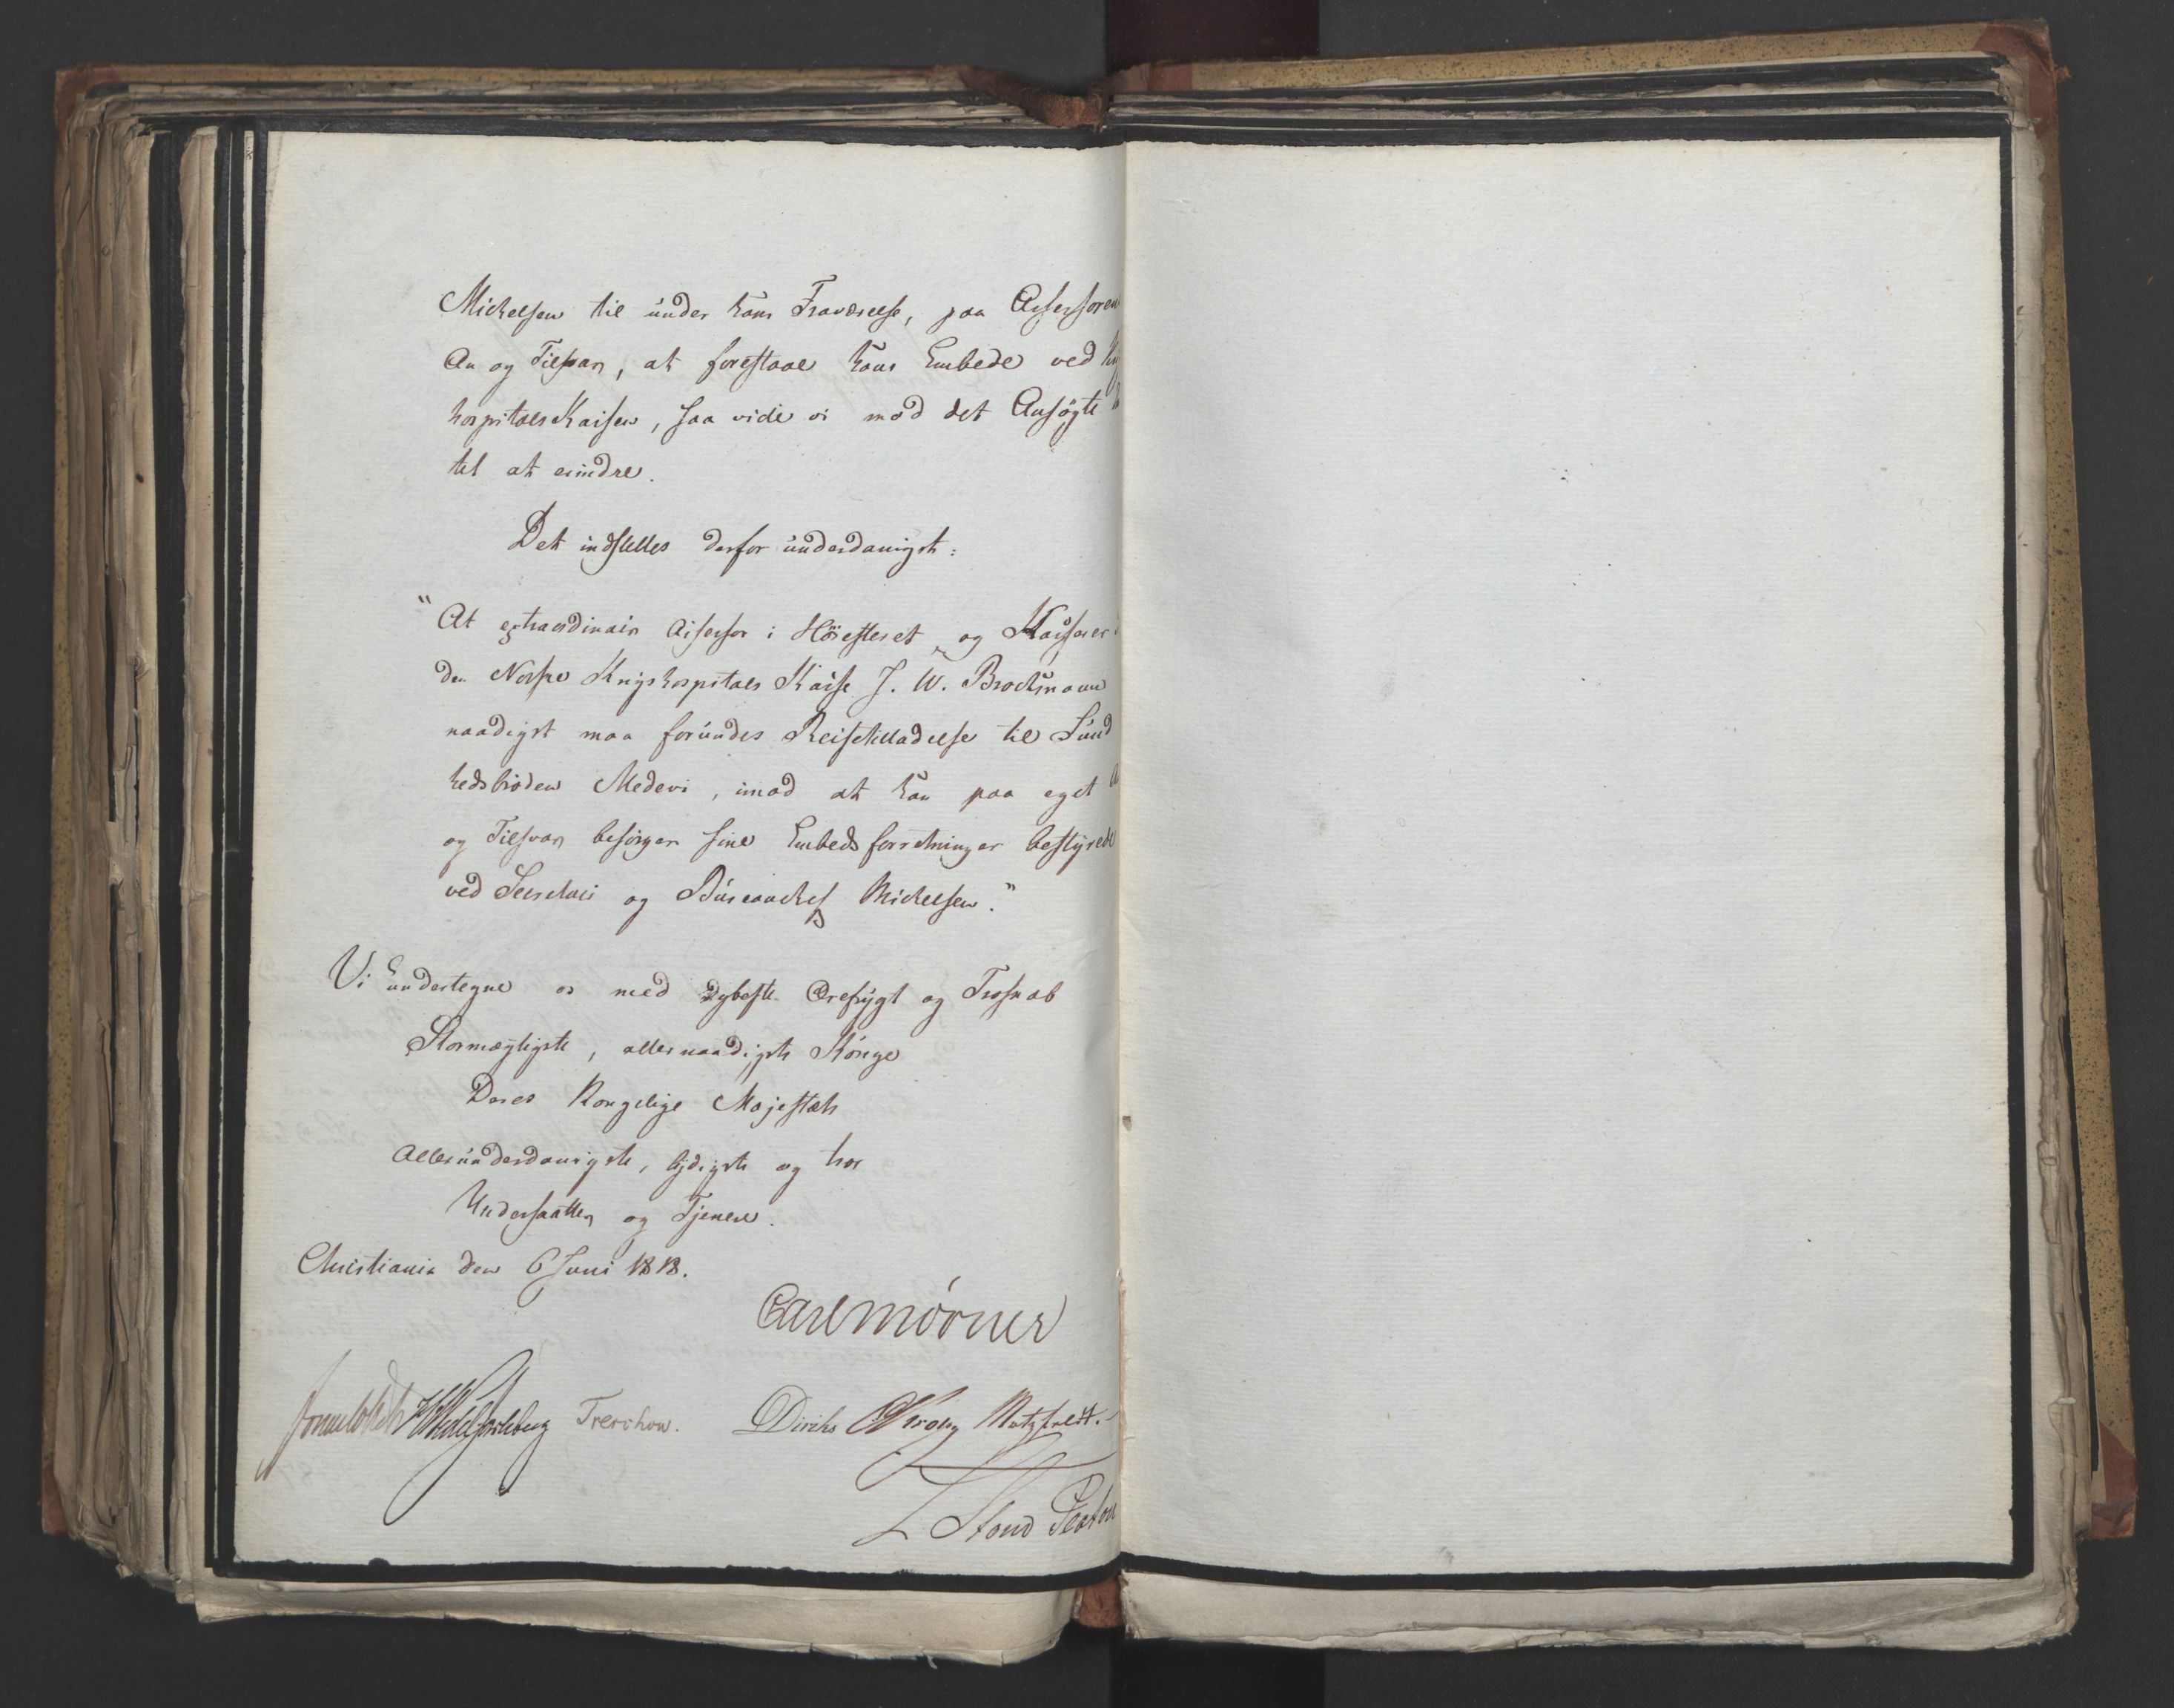 Michelsen til under hans Fraværelse, paa Assessoren
An og Tilsvar, at forestaae hans Embede ved
hospitals Kassen, saa vide vi mod det Ansøgte
til at erindre.
Det indstilles derfor underdanigst:
"At extraordinair Assessor i Høiesteret og Kasserer
den Norske Krigshospitals Kasse J. W. Brockmann
naadigst maa forundes Reisetilladelse til Sund
hedsbrøden Medevi, imod at han paa eget A
og Tilsvar besørger sine Embedsforretninger bestyrede
ved Secretair og Bureauchef Michelsen."
Vi undertegne os med dybeste Ærefrygt og Troskab
Stormægtigste, allernaadigste Konge
Deres Kongelige Majestæts
Allerunderdanigste, lydigste og troe
Undersaatter og Tjenere.
Christiania den 6 Juni 1818.
Carl Mörner
Sommerhielm HWedel Jarlsberg Treschow. Diriks Krogh Motzfeldt.
L Stoud Platou